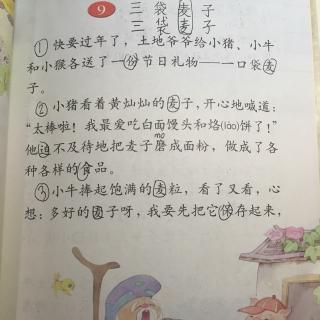 9
三 袋 麦 子
三 袋 麦 子
①快要过年了,土地爷爷给小猪、小牛
和小猴各送了一份节日礼物——一口袋麦
子。
②小猪看着黄灿灿的麦子,开心地喊道:
“太棒啦!我最爱吃白面馒头和烙(lào)饼了!”
mó
他迫不及待地把麦子磨成面粉,做成了各
种各样的食品。
③小牛捧起饱满的麦粒,看了又看,心
想:多好的麦子呀,我要先把它保存起来,